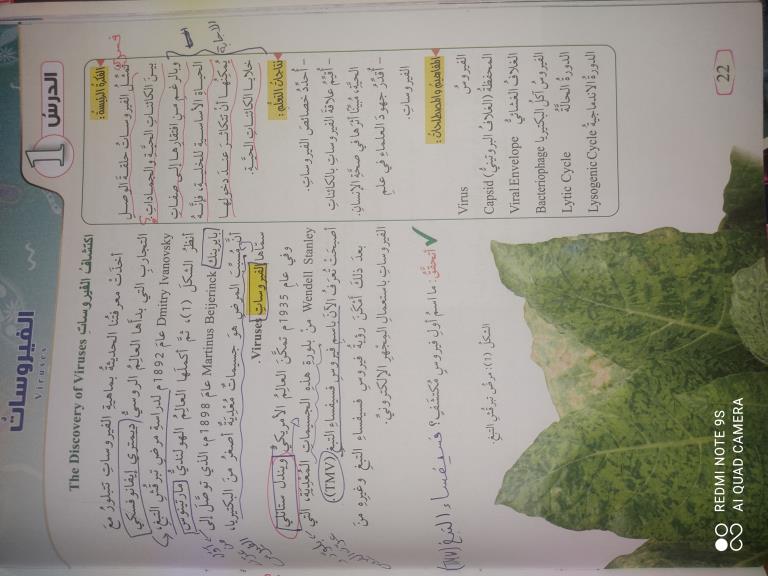 الفيروسات
Viruses
الدرس 1
الفكرة الرئيسة:
تمثّلُ الفيروساتُ حلقةَ الوصلِ
بينَ الكائناتِ الحيّةِ والجماداتِ،
وبالرغمِ من افتقارِها إلى صفاتِ
الحياةِ الأساسيةِ للخليةِ، فإنَّهُ
يُمكنُها أنْ تتكاثرَ عندَ دخولِها
خلايا الكائناتِ الحيّةِ.
نتاجاتُ التعلُّمِ:
– أُحدّدُ خصائصَ الفيروساتِ.
– أُقيّمُ علاقةَ الفيروساتِ بالكائناتِ
الحيّةِ، مبيّنًا أثرَها في صحّةِ الإنسانِ.
– أُقدّرُ جهودَ العلماءِ في علمِ
الفيروساتِ.
المفاهيمُ والمصطلحاتُ:
Virus الفيروسُ
Capsid المحفظةُ (الغلافُ البروتينيُّ)
Viral Envelope الغلافُ الغشائيُّ
Bacteriophage الفيروسُ آكلُ البكتيريا
Lytic Cycle الدورةُ الحالّةُ
Lysogenic Cycle الدورةُ الاندماجيةُ
اكتشافُ الفيروساتِ The Discovery of Viruses
أخذَتْ معرفتُنا الحديثةُ بماهيةِ الفيروساتِ تتبلورُ معَ
التجاربِ التي بدأَها العالِمُ الروسيُّ ديمتري إيفانوفسكي
Dmitry Ivanovsky عامَ 1892م لدراسةِ مرضِ تبرقُشِ التبغِ،
أنظرُ الشكلَ (1)، ثمَّ أكملَها العالِمُ الهولنديُّ مارتينوس
بايرينك Martinus Beijerinck عامَ 1898م، الذي توصّلَ إلى
أنَّ مُسبِّبَ المرضِ هوَ جسيماتٌ مُعْدِيَةٌ أصغرُ منَ البكتيريا،
سمّاها الفيروساتِ Viruses.
وفي عامِ 1935م تمكّنَ العالِمُ الأمريكيُّ ويندل ستانلي
Wendell Stanley منْ بلورةِ هذهِ الجسيماتِ المُعْدِيَةِ، التي
أصبحَتْ تُعرَفُ الآنَ باسمِ فيروسِ فسيفساءِ التبغِ (TMV)
بعدَ ذلكَ أمكنَ رؤيةُ فيروسِ فسيفساءِ التبغِ وغيرِه منَ
الفيروساتِ باستعمالِ المِجهرِ الإلكترونيِّ.
✓ أتحقّقُ: ما اسمُ أولِ فيروسٍ مُكتشَفٍ؟ فسيفساء التبغ (TMV)
الشكلُ (1): مرضُ تبرقُشِ التبغِ.
22
REDMI NOTE 9S
AI QUAD CAMERA